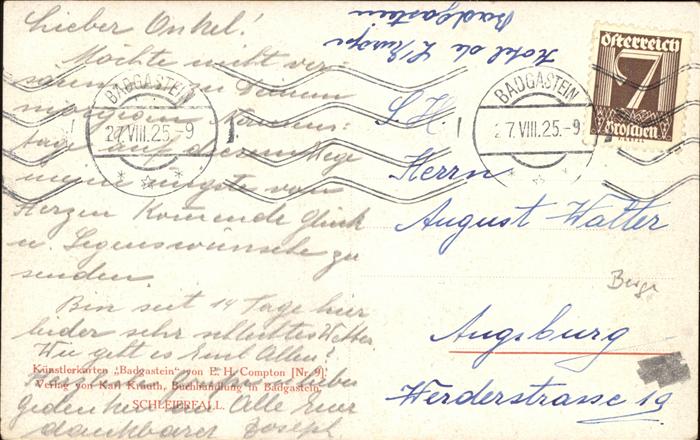 Lieber Onkel!
Möchte nicht ver-
säumen zu Deinem
morgigen Namens-
tage auf diesem Wege
meine innigsten vom
Herzen kommende Glück
u. Segenswünsche zu
senden.
Bin seit 14 Tage hier
leider sehr schlechtes Wetter.
Wie geht es Euch Allen?
gedenket Alle Euer
dankbarer Joseph
Künstlerkarten „Badgastein" von E. H. Compton [Nr. 9].
Verlag von Karl Krauth, Buchhandlung in Badgastein.
SCHLEIERFALL.
Hotel de l'Europe
Badgastein
BADGASTEIN
27.VIII.25.-9
BADGASTEIN
27.VIII.25.-9
Österreich
7
Groschen
S. H.
Herrn
August Walter
Augsburg
Werderstrasse 19